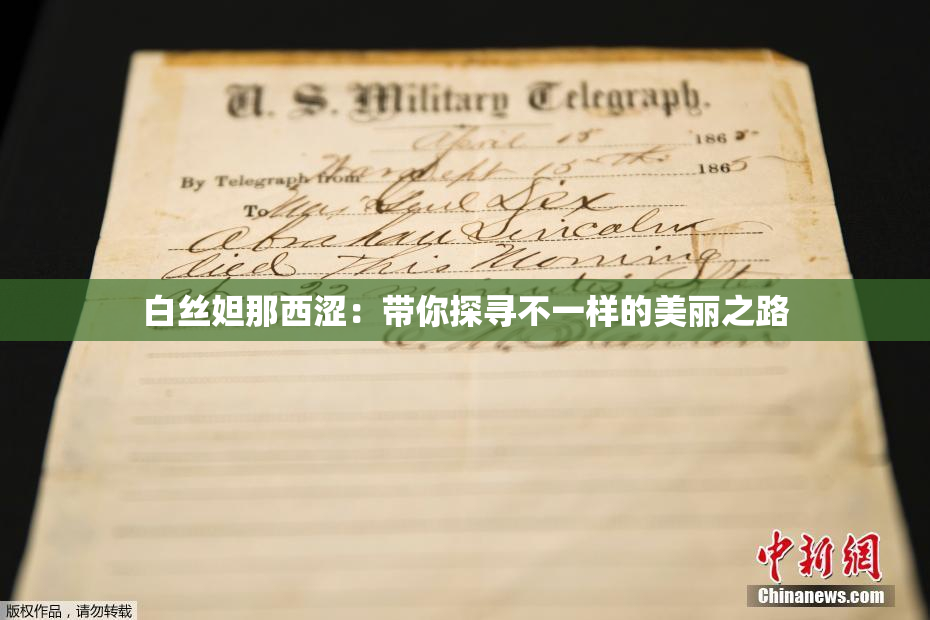 U. S. Military Telegraph.
April 15 1865
By Telegraph from War Dept 15th 1865
To Maj Genl Dix
Abraham Lincoln
died This Morning
22 minutes after
白丝妲那西涩：带你探寻不一样的美丽之路
中新網
Chinanews.com
版权作品，请勿转载